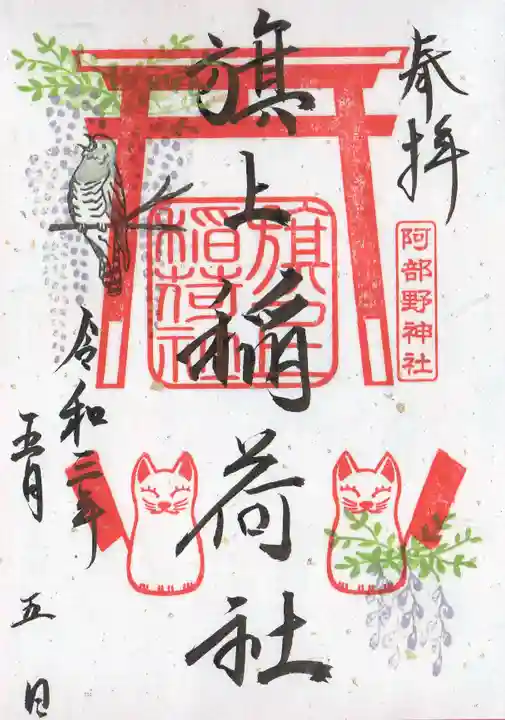 奉拝
阿部野神社
旗上稲荷社
旗上
稲荷社
令和三年
五月
五日